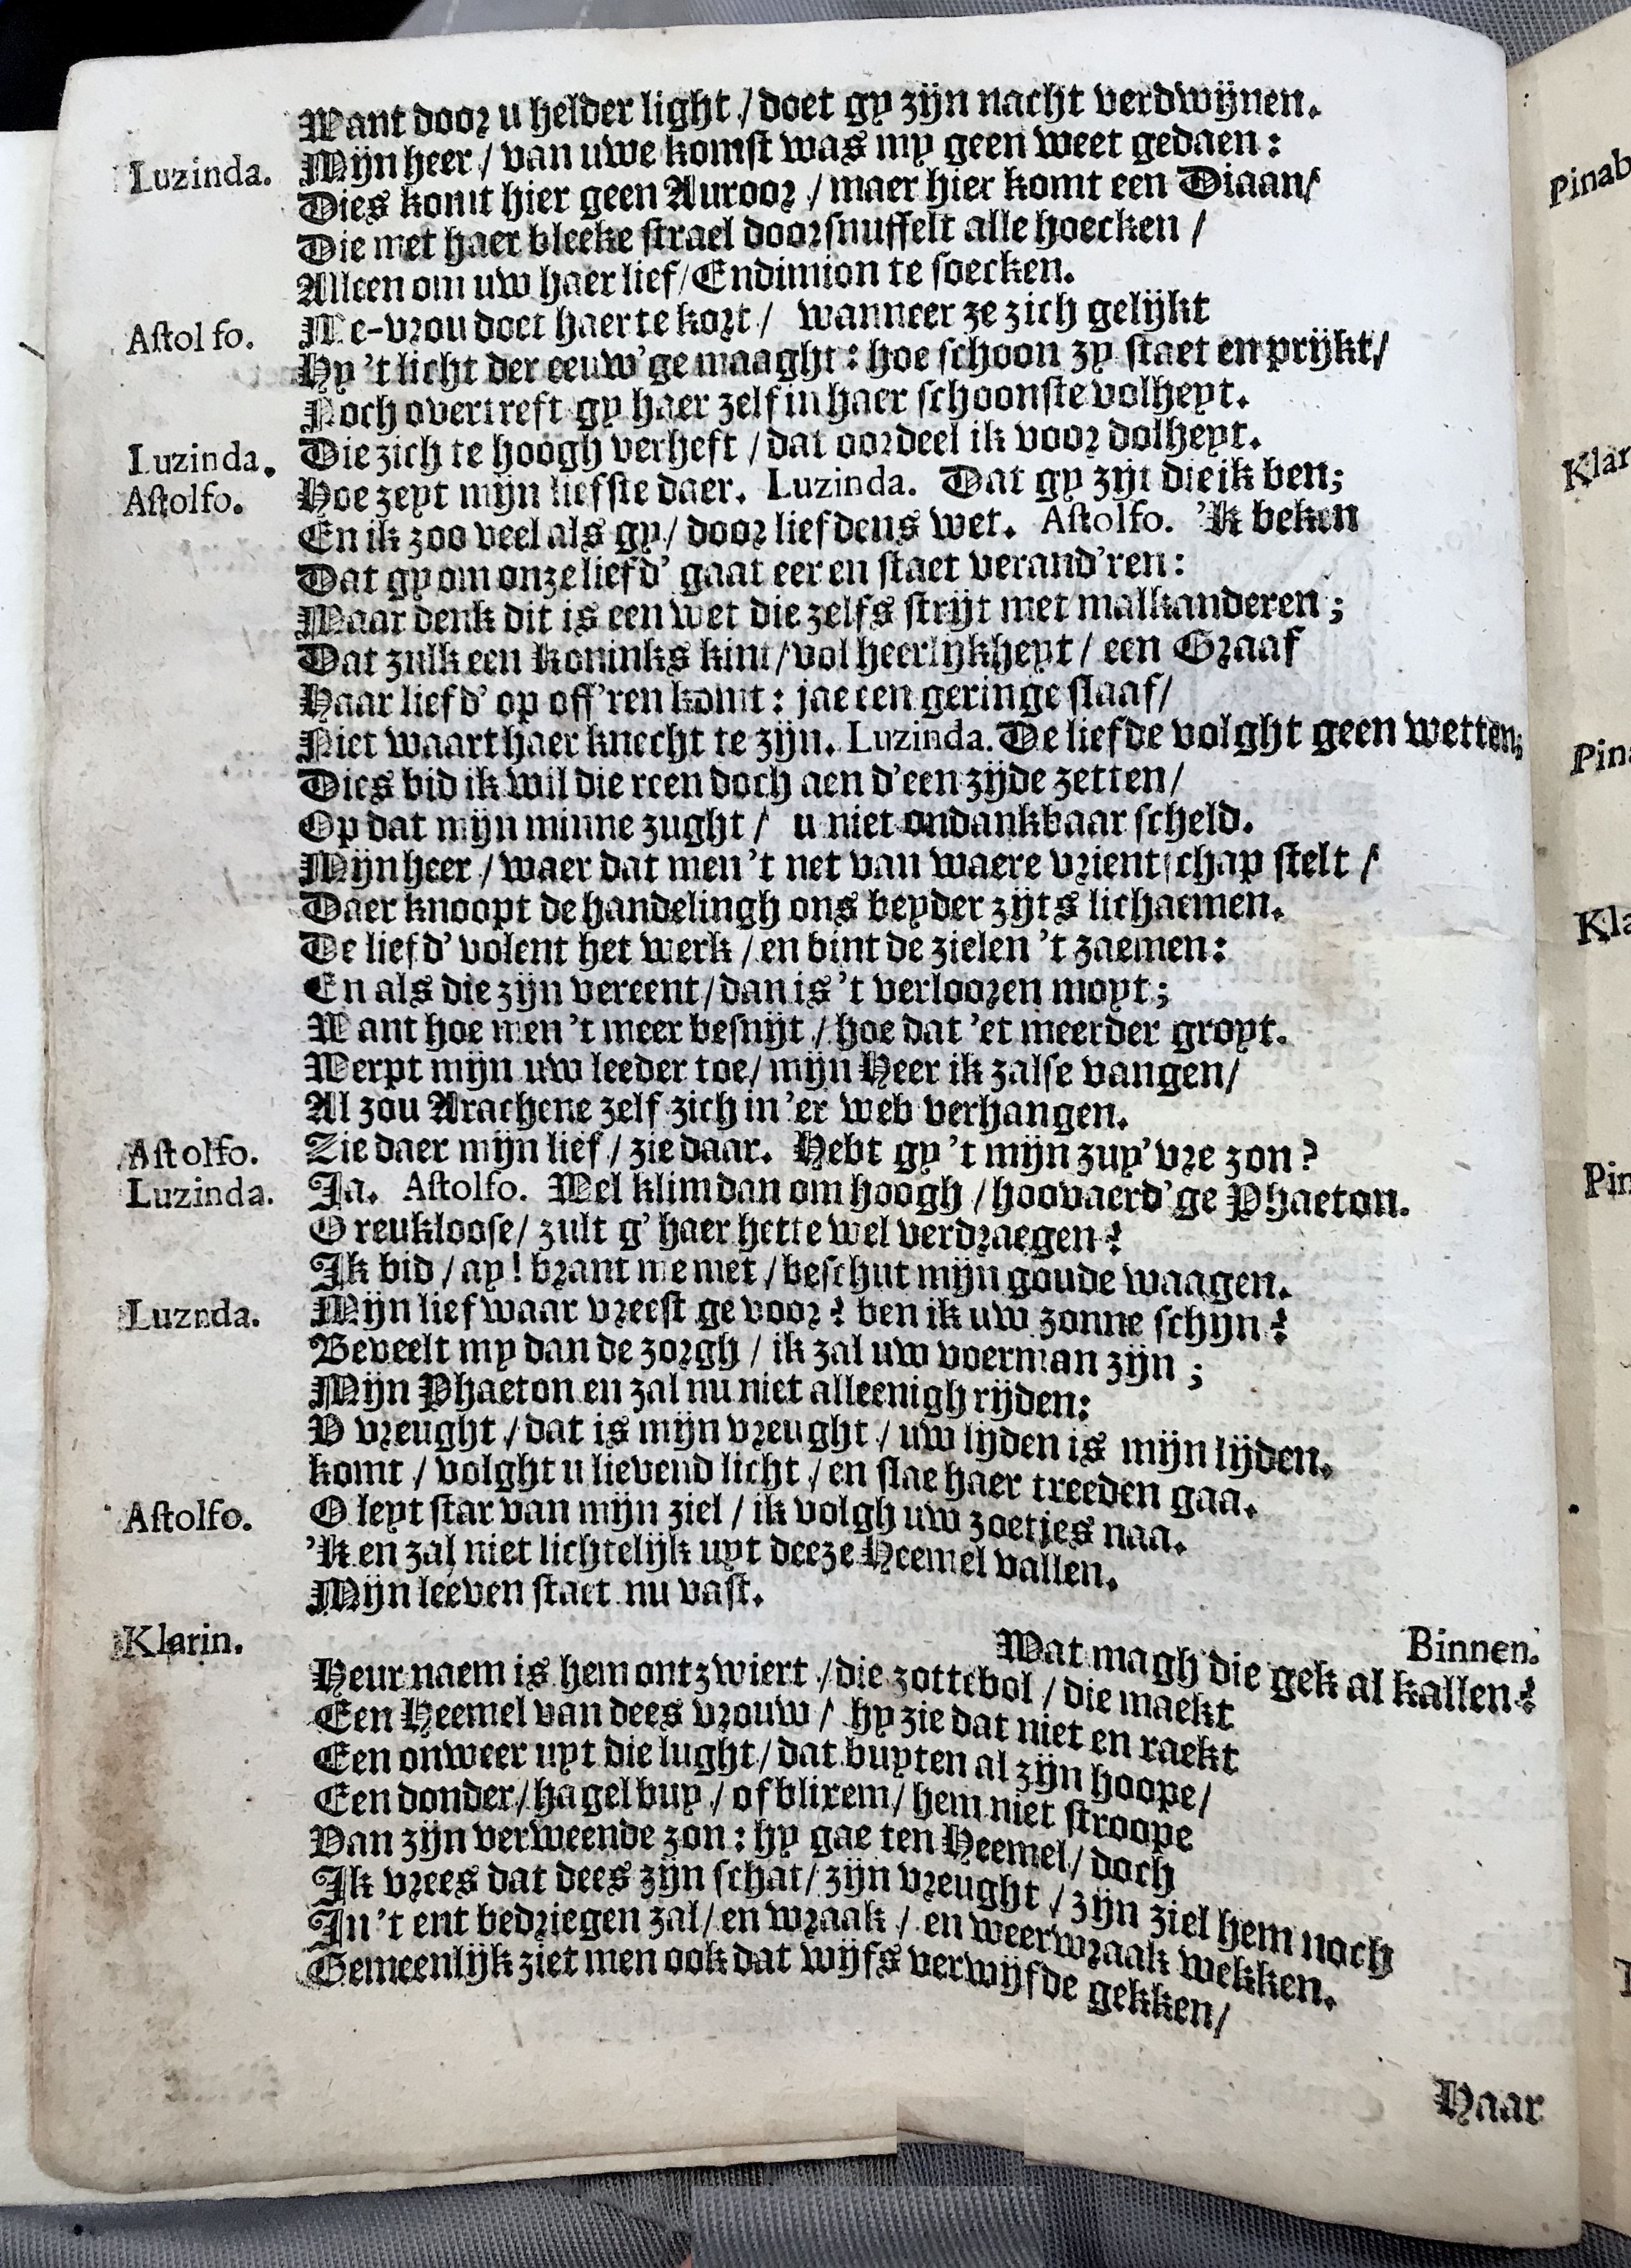 Want door u helder light / doet gy zijn nacht verdwijnen.
Luzinda. Mijn heer / van uwe komst was my geen weet gedaen :
Dies komt hier geen Auroor / maer hier komt een Diaan /
Die met haer bleeke strael doorsnuffelt alle hoecken /
Alleen om uw haer lief / Endimion te soecken.
Astolfo. Me-vrou doet haer te kort / wanneer ze zich gelijkt
By 't licht der eeuw'ge maaght : hoe schoon zy staet en prijkt /
Noch overtreft gy haer zelf in haer schoonste volheyt.
Luzinda. Die zich te hoogh verheft / dat oordeel ik voor dolheyt.
Astolfo. Hoe zeyt mijn liefste daer. Luzinda. Dat gy zijt die ik ben;
En ik zoo veel als gy / door liefdens wet. Astolfo. 'Ik beken
Dat gy om onze liefd' gaat eer en staet verand'ren :
Maar denk dit is een wet die zelfs strijt met malkanderen ;
Dat zulk een koninks kint / vol heerlijkheyt / een Graaf
Haar liefd' op off'ren komt : jae een geringe slaaf /
Niet waart haer knecht te zijn. Luzinda. De liefde volght geen wetten;
Dies bid ik wil die reen doch aen d'een zijde zetten /
Op dat mijn minne zught / u niet ondankbaar scheld.
Mijn heer / waer dat men 't net van waere vrientschap stelt /
Daer knoopt de handelingh ons beyder zijts lichaemen.
De liefd' volent het werk / en bint de zielen 't zaemen :
En als die zijn vereent / dan is 't verloozen moyt ;
Want hoe men 't meer besnijt / hoe dat 'et meerder groyt.
Werpt mijn uw leeder toe / mijn Heer ik zalse vangen /
Al zou Arachene zelf zich in 'er web verhangen.
Astolfo. Zie daer mijn lief / zie daar. Hebt gy 't mijn zuy'vre zon ?
Luzinda. Ja. Astolfo. Wel klim dan om hoogh / hoovaerd'ge Phaeton.
O reukloose / zult g' haer hette wel verdraegen ?
Ik bid / ay ! brant me niet / beschut mijn goude waagen.
Luznda. Mijn lief waar vreest ge voor ? ben ik uw zonne schijn ?
Beveelt my dan de zorgh / ik zal uw voerman zijn ;
Mijn Phaeton en zal nu niet alleenigh rijden :
V vreught / dat is mijn vreught / uw lijden is mijn lijden.
komt / volght u lievend licht / en slae haer treeden gaa.
Astolfo. O leyt star van mijn ziel / ik volgh uw zoetjes naa.
'Ik en zal niet lichtelijk uyt deeze Heemel vallen.
Mijn leeven staet nu vast.
Binnen.
Klarin. Wat magh die gek al kallen ?
Heur naem is hem ontzwiert / die zottebol / die maekt
Een Heemel van dees vrouw / hy zie dat niet en raekt
Een onweer uyt die lught / dat buyten al zijn hoope /
Een donder / hagelbuy / of blixem / hem niet stroope
Van zijn verweende zon : hy gae ten Heemel / doch
Ik vrees dat dees zijn schat / zijn vreught / zijn ziel hem noch
In 't ent bedriegen zal / en wraak / en weerwraak wekken.
Gemeenlijk ziet men ook dat wijfs verwijfde gekken /
Haar
Pinab
Klar
Pin
Kla
Pin